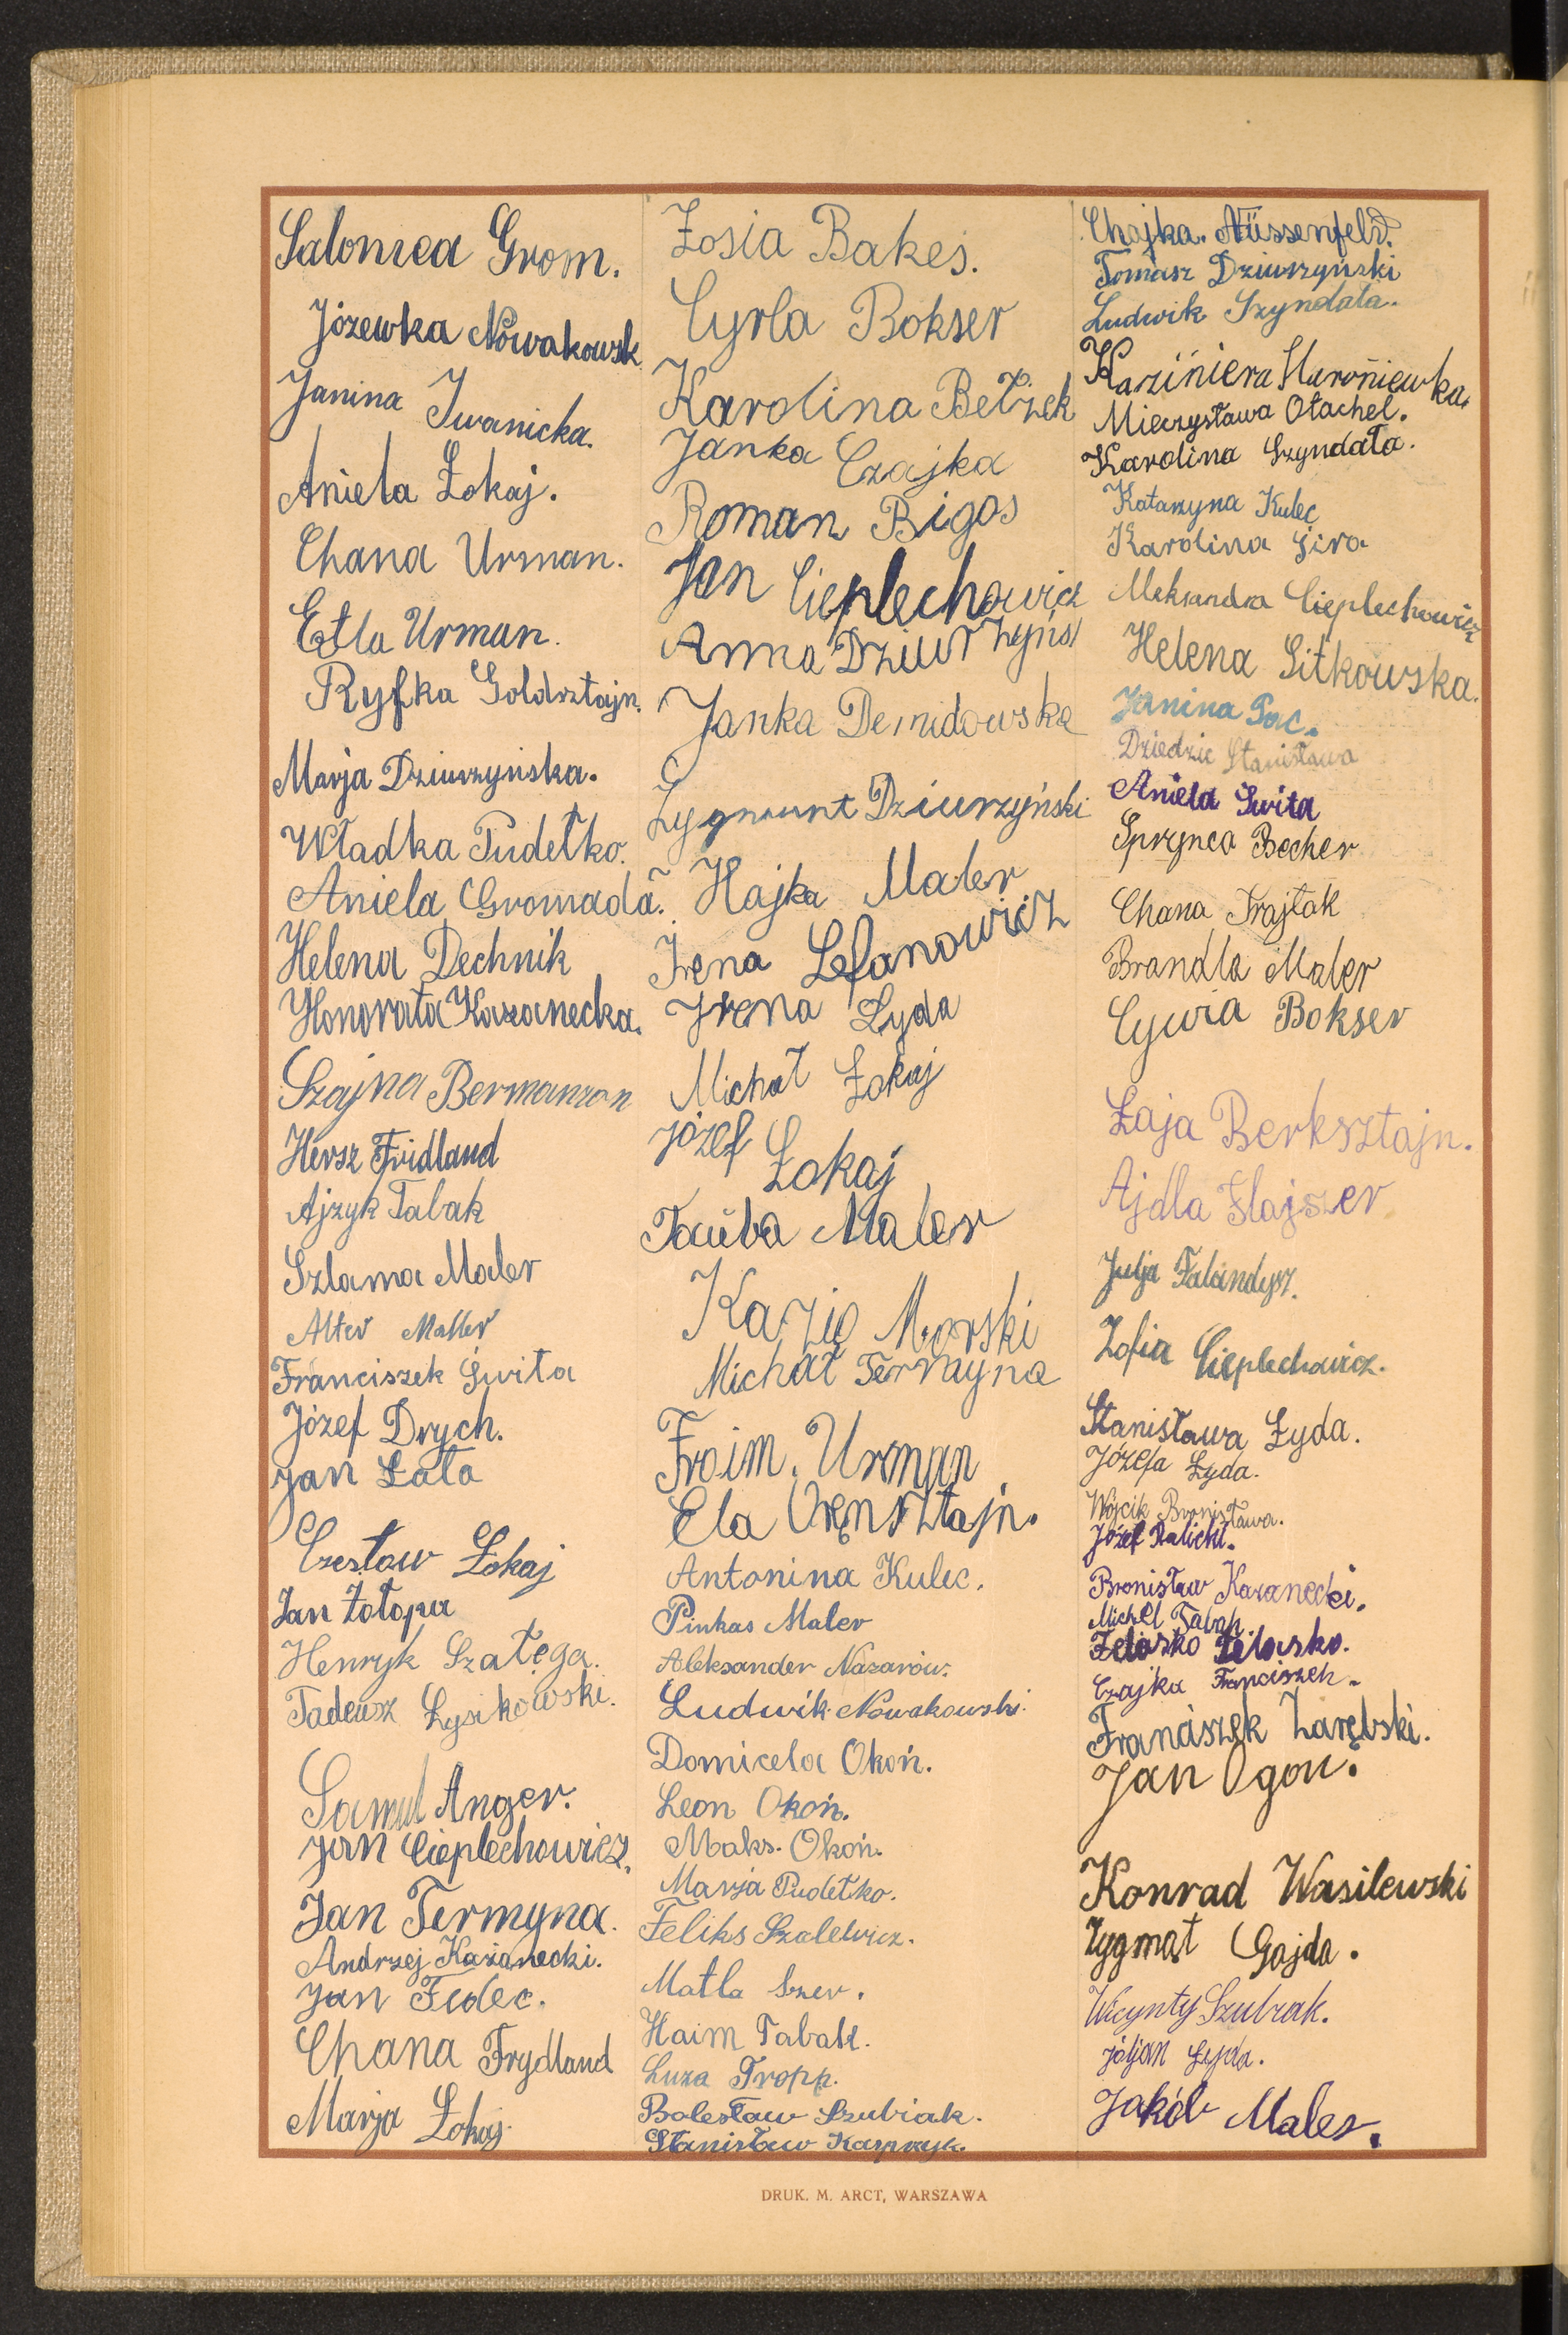 Salomea Grom.
Józewka Nowakowsk
Janina Iwanicka.
Aniela Łokaj.
Chana Urman.
Etla Urman.
Ryfka Goldsztajn.
Marja Dziurzyńska.
Władka Pudełko.
Aniela Gromada.
Helena Dechnik
Honorata Kazanecka.
Szajna Bermanzon
Hersz Fridland
Ajzyk Tabak
Szlama Maler
Alter Maller
Franciszek Świta
Józef Drych.
Jan Łata
Czesław Łokaj
Jan Żołopa
Henryk Szałęga.
Tadeusz Łysikowski.
Samul Anger.
Jan Cieplechowicz.
Jan Termyna.
Andrzej Kazanecki.
Jan Fedec.
Chana Frydland
Marja Łokaj
Zosia Bakes.
Cyrla Bokser
Karolina Bełżek
Janka Czajka
Roman Bigos
Jan Cieplechowicz
Anna Dziurzyńs
Janka Demidowska
Zygmunt Dziurzyński
Hajka Maler
Irena Lefanowicz
Irena Łyda
Michał Łokaj
Józef Łokaj
Tauba Maler
Kazio Morski
Michał Termyna
Froim. Urman
Ela Orensztajn.
Antonina Kulec.
Pinkas Maler
Aleksander Nazarów.
Ludwik Nowakowski.
Domicela Okoń.
Leon Okoń.
Maks. Okoń.
Marja Pudełko.
Feliks Szalewicz.
Matla Szer.
Haim Tabak.
Luza Tropp.
Bolesław Szubiak.
Stanisław Kasprzyk.
Chajka. Nüssenfeld.
Tomasz Dziurzyński
Ludwik Szyndała.
Mieczysława Otachel.
Karolina Szyndała.
Katarzyna Kulec
Karolina Gira
Aleksandra Cieplechowicz
Helena Sitkowska.
Janina Pac.
Dziedzic Stanisława
Aniela Świta
Sprynca Becher
Chana Frajtak
Brandla Maler
Cywia Bokser
Łaja Berksztajn.
Ajdla Flajszer
Julja Falandysz.
Zofia Cieplechowicz.
Stanisława Łyda.
Józefa Łyda.
Wójcik Bronisława.
Józef Palicki.
Bronisław Kazanecki.
Michel Tabak
Żelasko
Czajka Franciszek.
Franciszek Zarębski.
Jan Ogon.
Konrad Wasilewski
Zygmąt Gajda.
Wicynty Szubiak.
Łyda.
Jakób Maler.
DRUK. M. ARCT, WARSZAWA